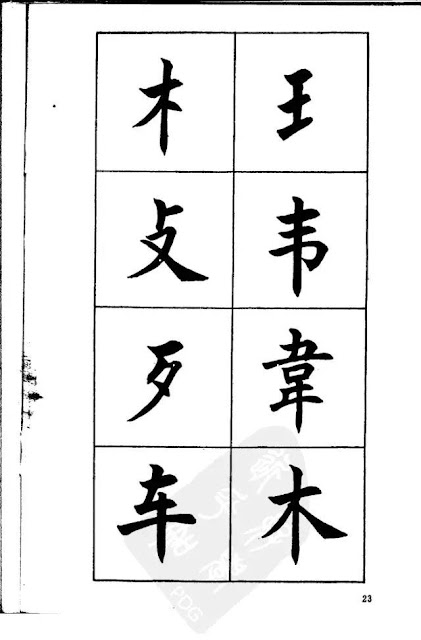 王韦韋木
木攴歹车
23
PDG